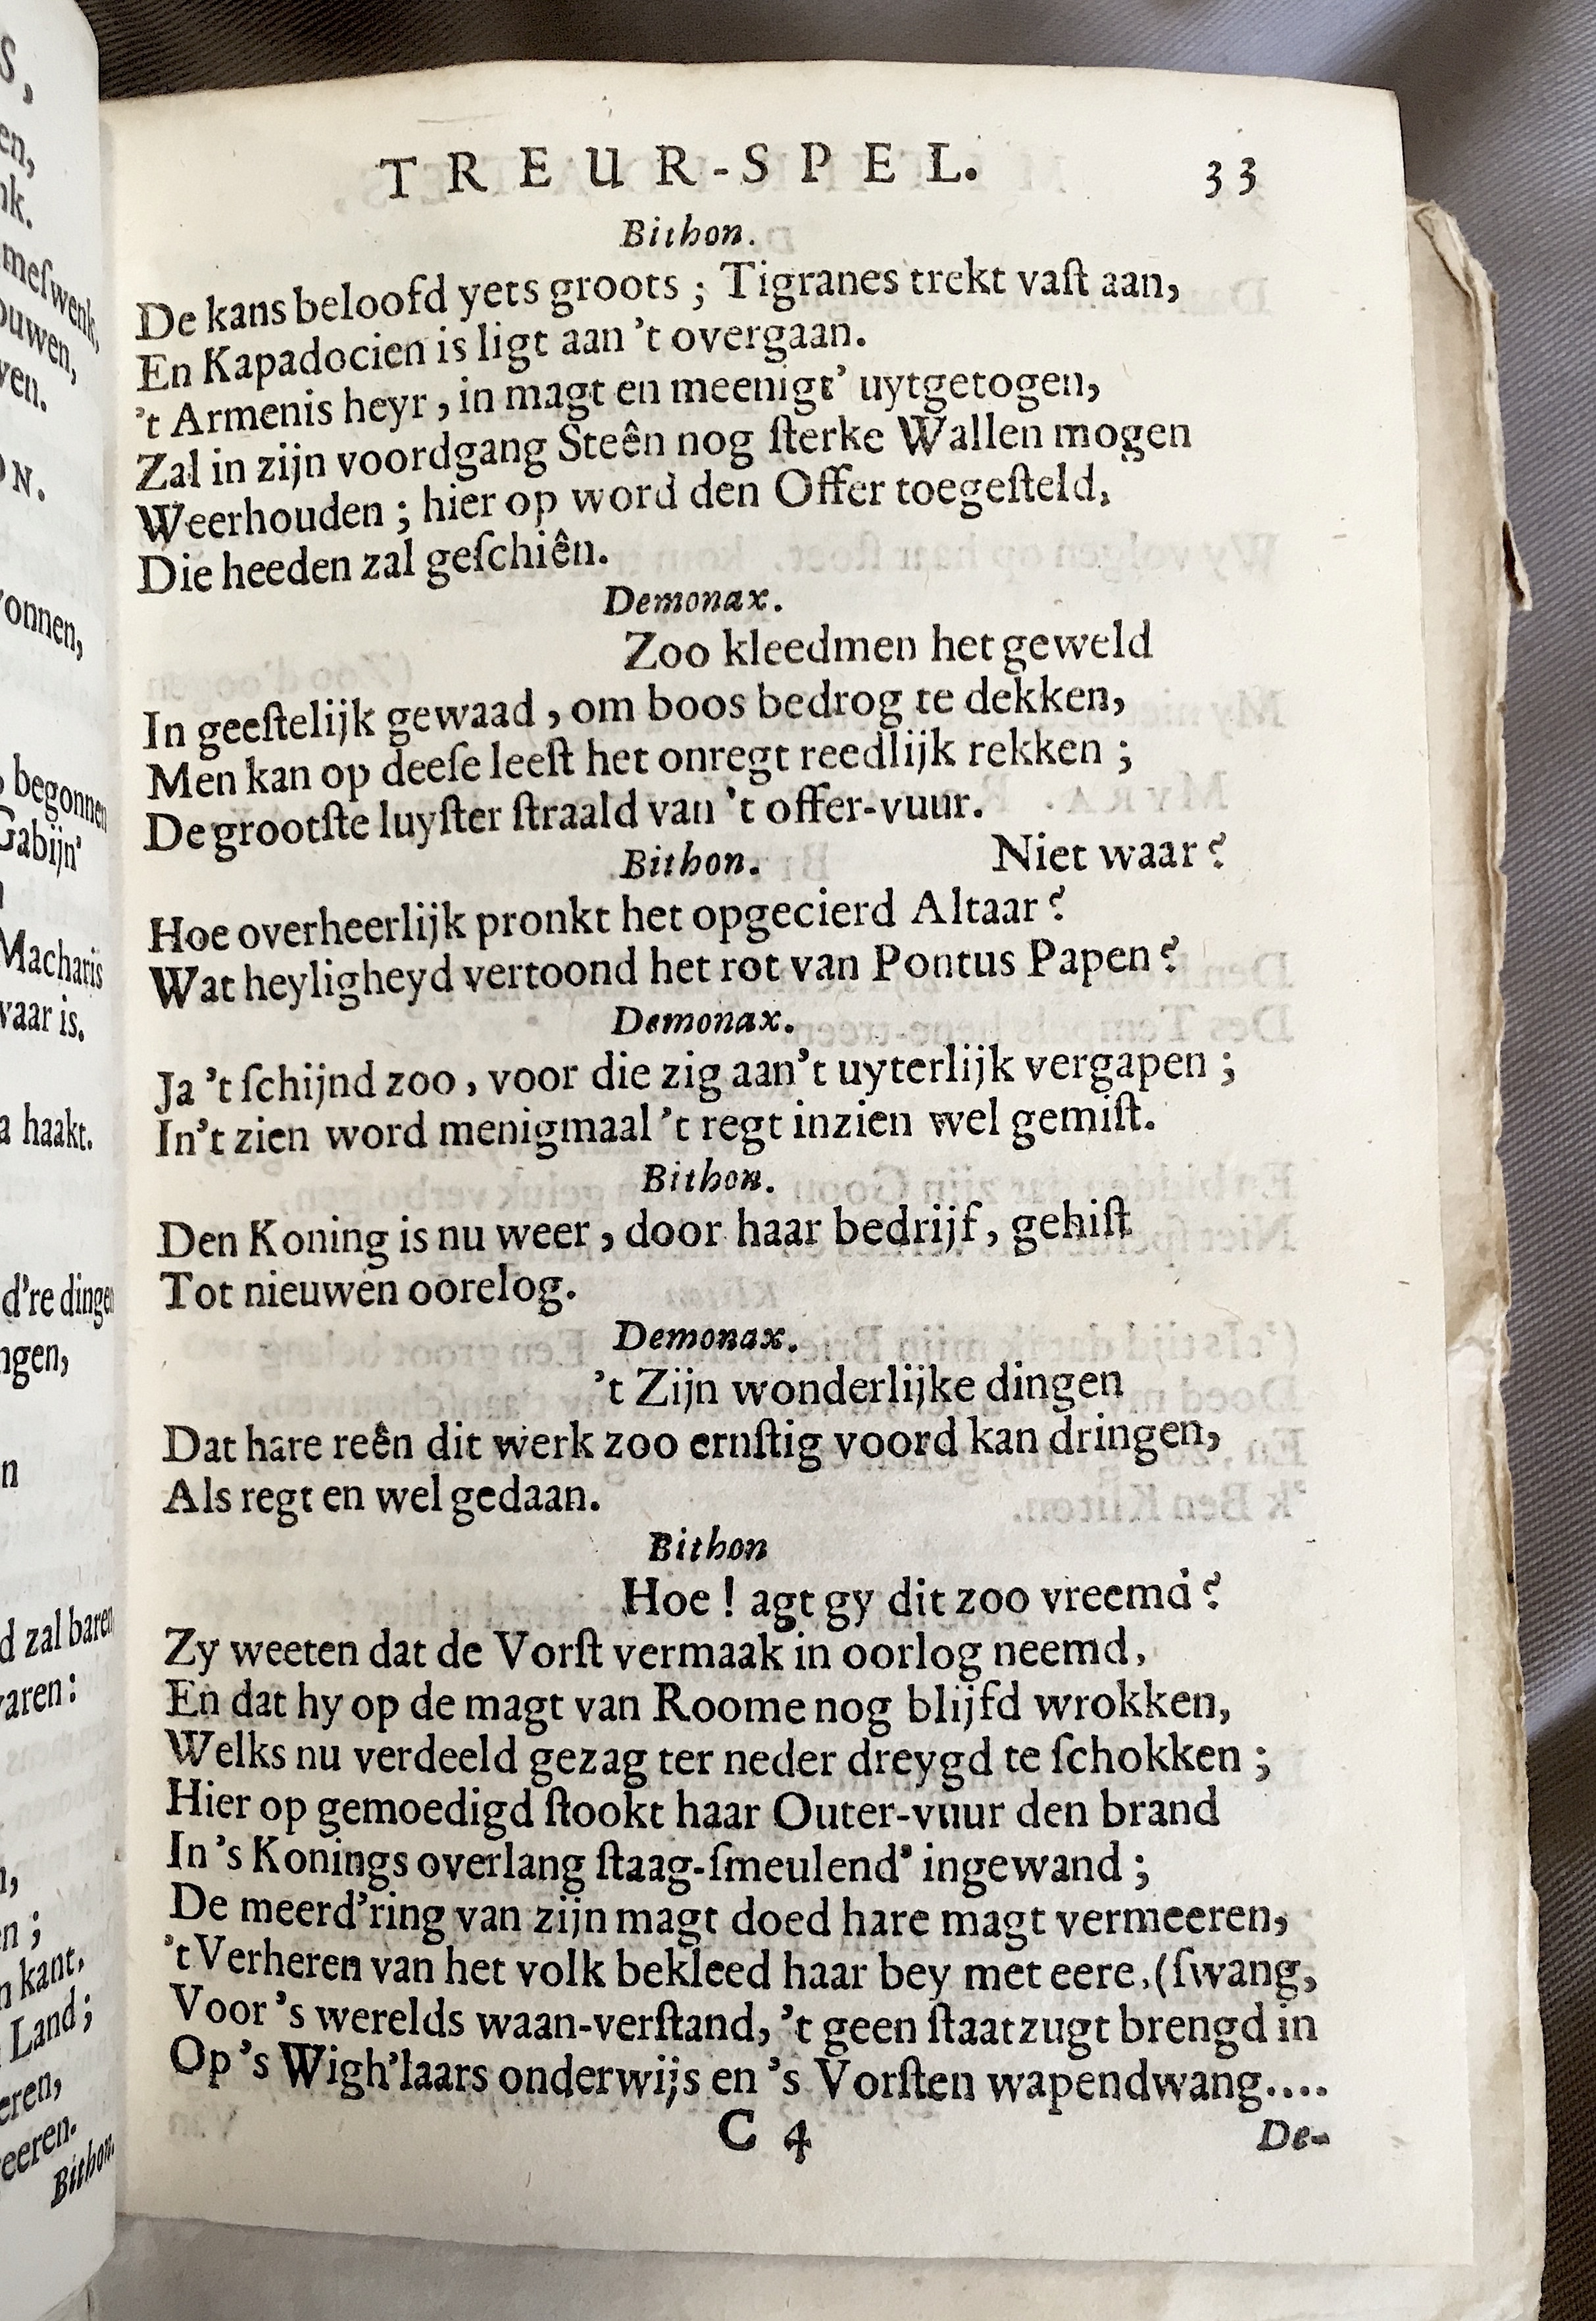 TREUR-SPEL. 33
Bithon.
De kans beloofd yets groots ; Tigranes trekt vaſt aan,
En Kapadocien is ligt aan 't overgaan.
't Armenis heyr, in magt en meenigt' uytgetogen,
Zal in zijn voordgang Steên nog ſterke Wallen mogen
Weerhouden ; hier op word den Offer toegeſteld,
Die heeden zal geſchiên.
Demonax.
Zoo kleedmen het geweld
In geeſtelijk gewaad, om boos bedrog te dekken,
Men kan op deeſe leeſt het onregt reedlijk rekken ;
De grootſte luyſter ſtraald van 't offer-vuur.
Bithon. Niet waar?
Hoe overheerlijk pronkt het opgecierd Altaar?
Wat heyligheyd vertoond het rot van Pontus Papen?
Demonax.
Ja 't ſchijnd zoo, voor die zig aan't uyterlijk vergapen ;
In't zien word menigmaal 't regt inzien wel gemiſt.
Bithon.
Den Koning is nu weer, door haar bedrijf, gehiſt
Tot nieuwen oorelog.
Demonax.
't Zijn wonderlijke dingen
Dat hare reên dit werk zoo ernſtig voord kan dringen,
Als regt en wel gedaan.
Bithon
Hoe ! agt gy dit zoo vreemd?
Zy weeten dat de Vorſt vermaak in oorlog neemd,
En dat hy op de magt van Roome nog blijfd wrokken,
Welks nu verdeeld gezag ter neder dreygd te ſchokken ;
Hier op gemoedigd ſtookt haar Outer-vuur den brand
In 's Konings overlang ſtaag-ſmeulend' ingewand ;
De meerd'ring van zijn magt doed hare magt vermeeren,
't Verheren van het volk bekleed haar bey met eere, (ſwang,
Voor 's werelds waan-verſtand, 't geen ſtaatzugt brengd in
Op 's Wigh'laars onderwijs en 's Vorſten wapendwang....
C 4 De-